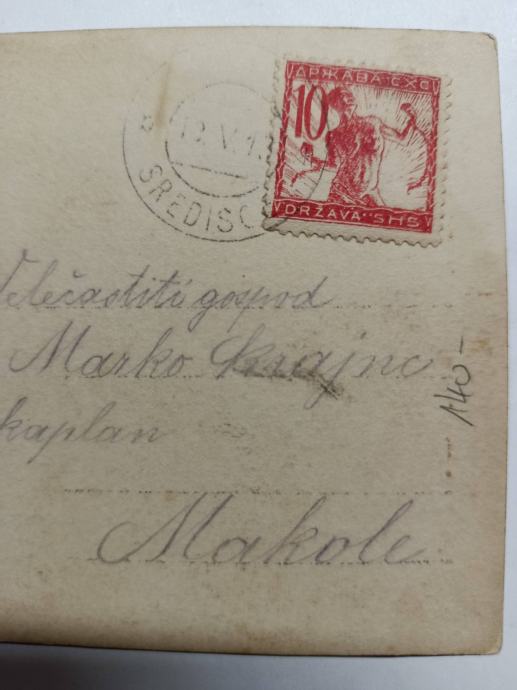 ДРЖАВА СХС
10
DRŽAVA SHS
12.V.1
SREDISC
Velečastiti gospod
Marko Krajnc
kaplan
Makole
140-